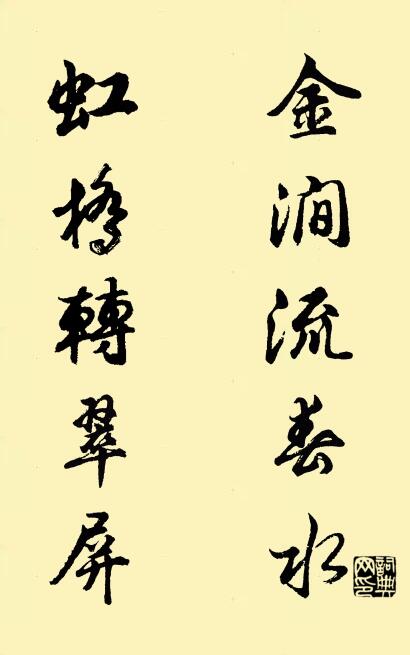 金澗流春水
虹橋轉翠屏
詞典網印